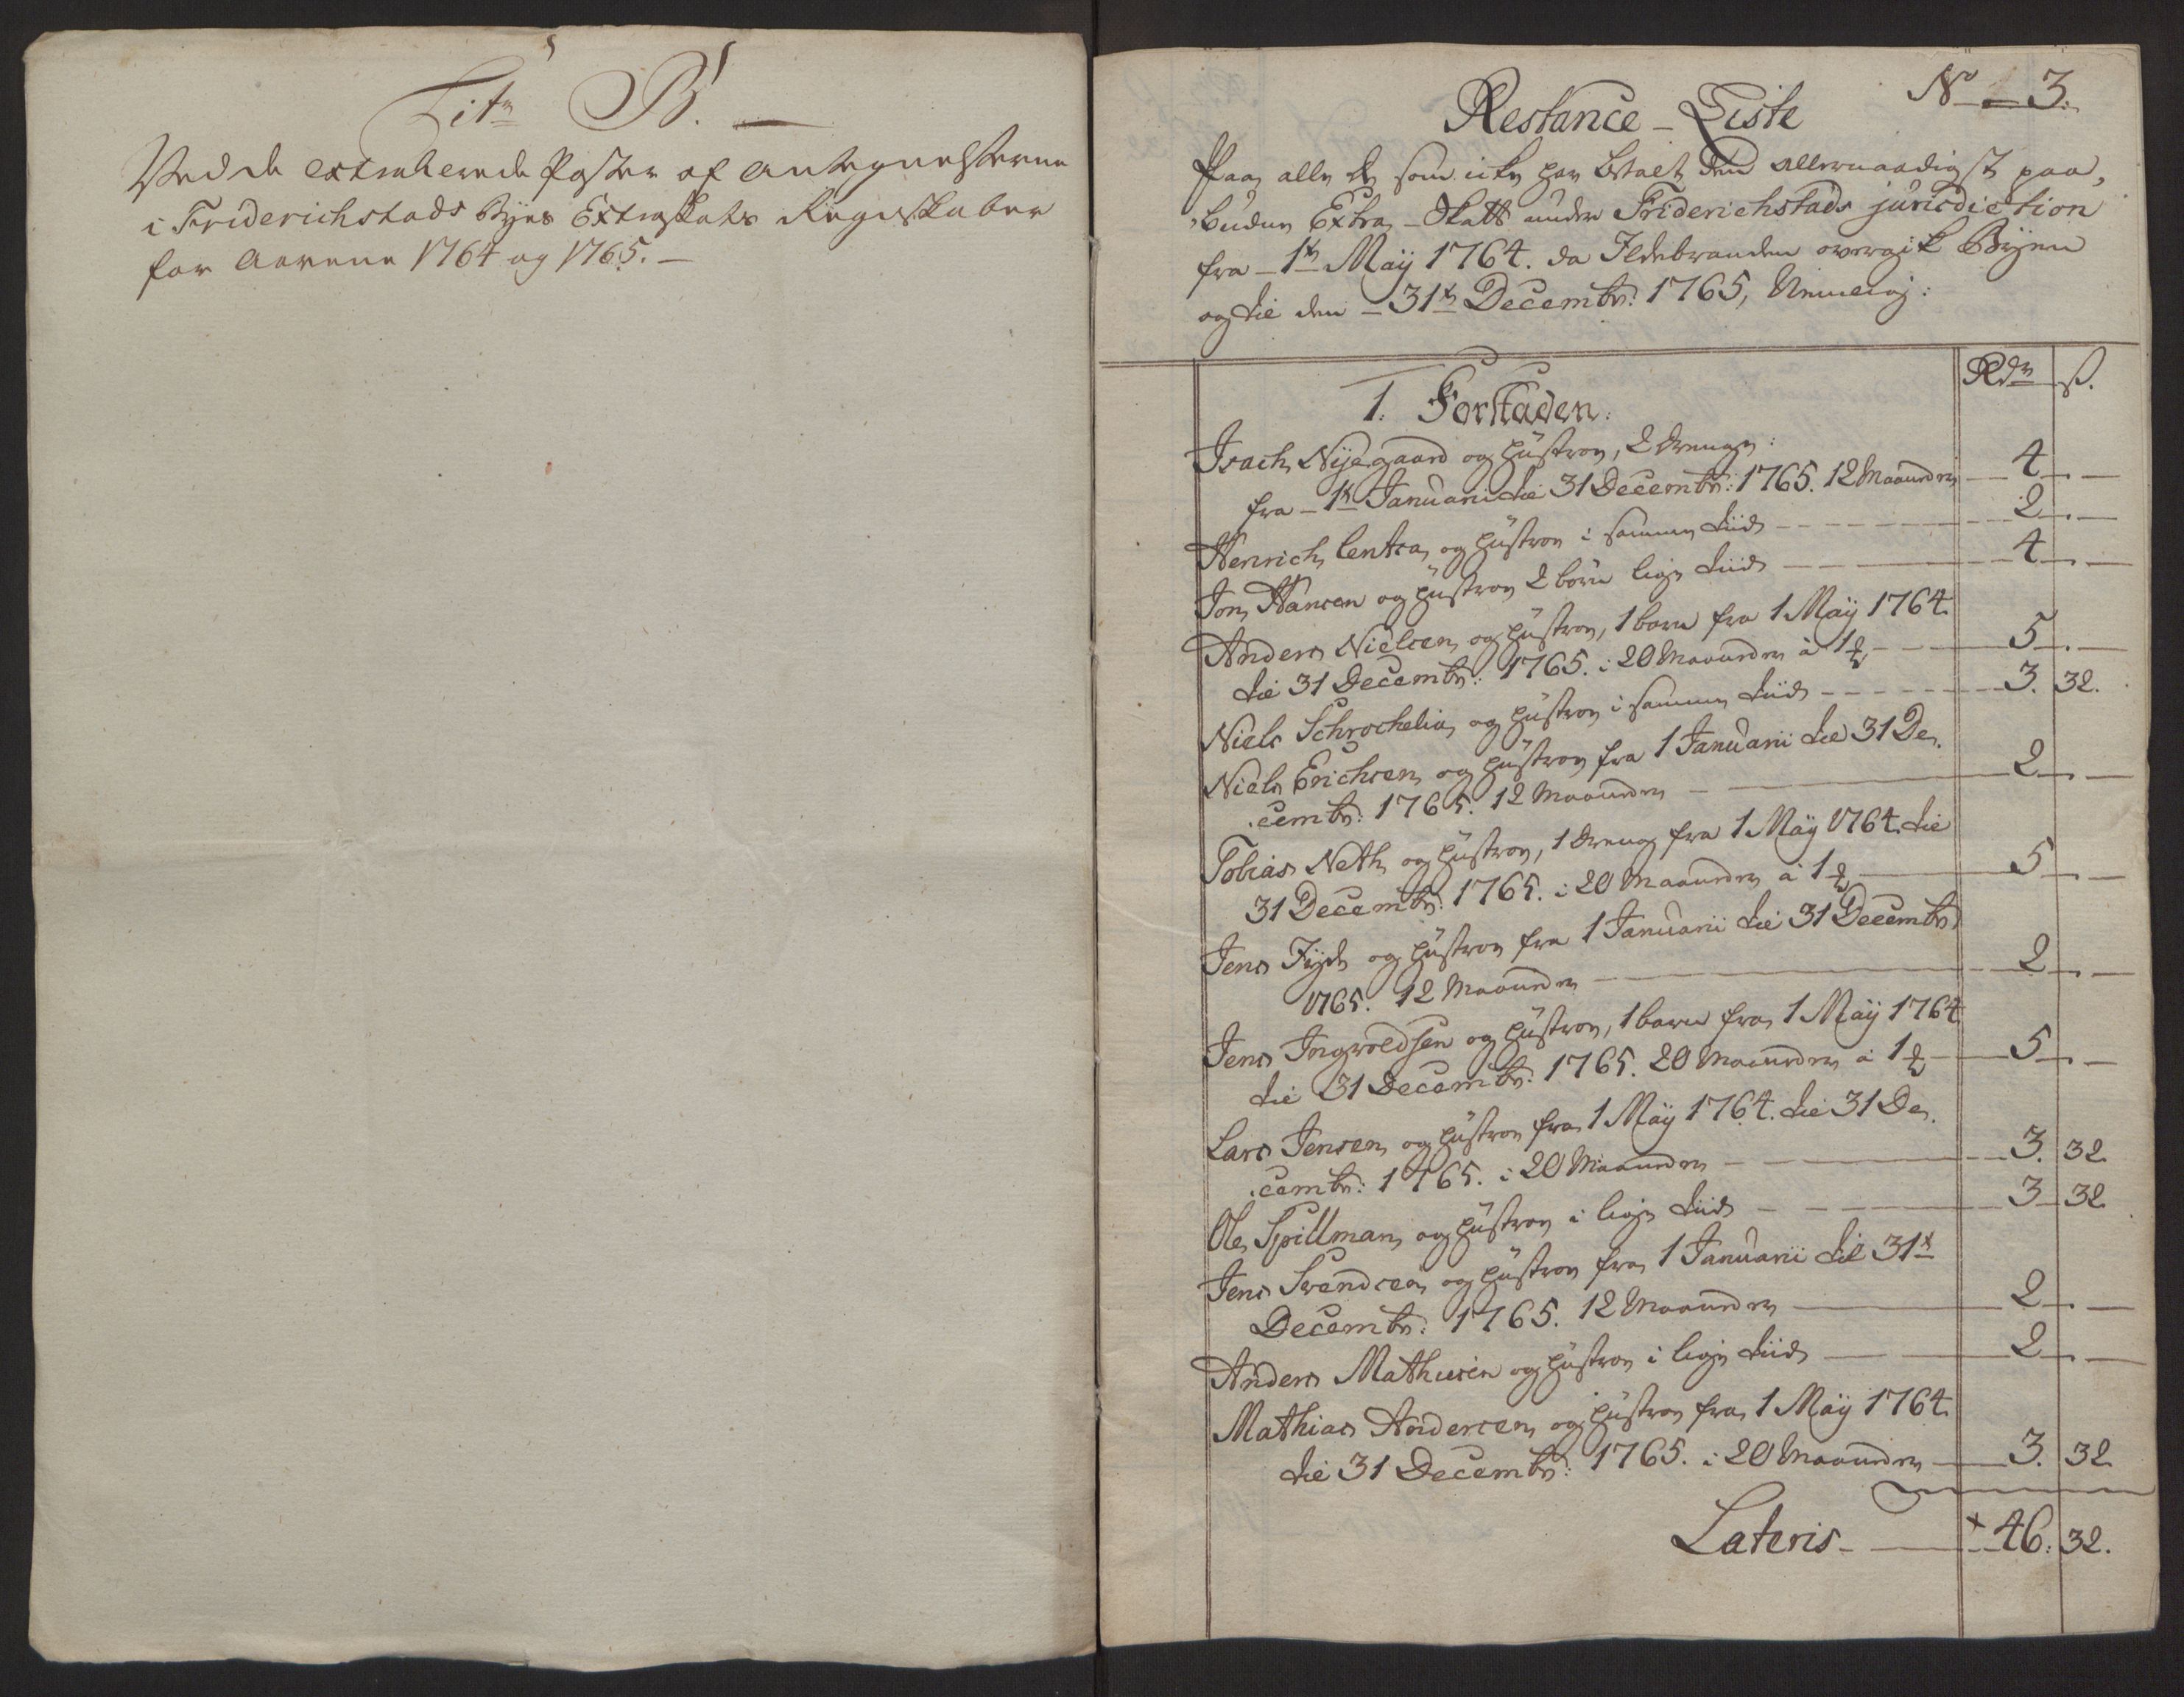 Litr B. —
Ved de extraherede Poster af Antegnelserne
i Friderichstads Byes Extraskats Regnskaber
for Aarene 1764 og 1765. —
No 3.
Restance-Liste
Paa alle de som icke har betalt den allernaadigst paa-
budne Extra-Skatt under Friderichstads jurisdiction
fra 1te Maij 1764. da Ildebranden overgik Byen
og til den 31te Decembr: 1765, Nemlig:
Rdr ß.
1. Forstaden:
Isach Nijegaard og Hustroe, 2 Drenge:
fra 1te Januari til 31 Decembr: 1765. 12 Maaneder — 4. —
Henrich Centra og Hustroe i samme tiid — 2. —
Jon Hansen og Hustroe 2 børn lige tiid — 4. —
Anders Nielsen og Hustroe, 1 barn fra 1 Maij 1764.
til 31 Decembr: 1765. i 20 Maaneder à 1 — 5. —
Niels Schrochelia og Hustroe i samme tiid — 3. 32.
Niels Erichsen og Hustroe fra 1 Januarii til 31 De-
cembr: 1765. 12 Maaneder — 2. —
Tobias Neth og Hustroe, 1 Dreng fra 1 Maij 1764. til
31 Decembr: 1765. i 20 Maaneder à 1 — 5. —
Jens Fyds og Hustroe fra 1 Januarii til 31 Decembr
1765. 12 Maaneder — 2. —
Jens Ingvoldsen og Hustroe, 1 barn fra 1 Maij 1764
til 31 Decembr: 1765. 20 Maaneder à 1 — 5. —
Lars Jensen og Hustroe fra 1 Maij 1764. til 31 De-
cembr: 1765. i 20 Maaneder — 3. 32
Ole Spillman og Hustroe i lige tiid — 3 32
Jens Svendsen og Hustroe fra 1 Januarii til 31te
Decembr: 1765. 12 Maaneder — 2. —
Anders Mathiesen og Hustroe i lige tiid — 2. —
Mathias Andersen og Hustroe fra 1 Maij 1764.
til 31 Decembr: 1765. i 20 Maaneder — 3. 32
Lateris — 46. 32.